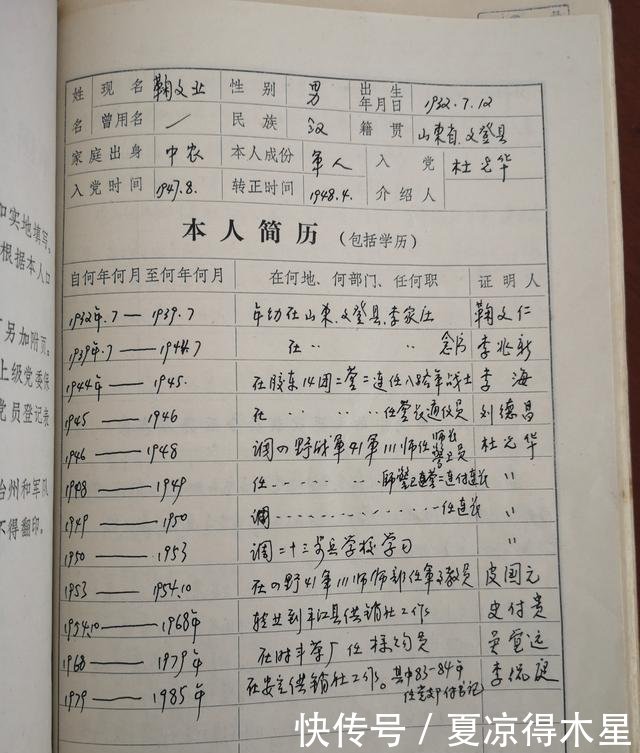 如实地填写。
根据本人口
另加附页。
上级党委保
党员登记表
台州和军队
不得翻印。
姓名 现名 鞠文业 性别 男 出生年月日 1932.7.12
曾用名 / 民族 汉 籍贯 山东省.文登县
家庭出身 中农 本人成份 军人 入党介绍人 杜光华
入党时间 1947.8. 转正时间 1948.4.
本人简历(包括学历)
自何年何月至何年何月 在何地、何部门、任何职 证明人
1932年.7——1939.7 年幼在山东.文登县.李家庄 鞠文仁
1939年.7——1944.7 在 〃 〃 念书 李兆新
1944年——1945. 在胶东14团二营二连任八路军战士 李海
1945——1946 在‥‥‥任营长通讯员 刘德昌
1946——1948 调四野战军41军111师任师长警卫员 杜光华
1948——1949 任‥‥‥师警卫连营二连付连长 〃
1949——1950 调‥‥‥任连长 〃
1950——1953 调二十三步兵学校学习 〃
1953——1954.10 在四野41军111师师部任军事教员 皮国元
1954.10——1968年 转业到平江县供销社工作 史付贵
1968——1979年 在时丰茶厂任採购员 吴重远
1979——1985年 在安定供销社工作。其中83-84年任党支部付书记 李侃庭
快传号/夏凉得木星